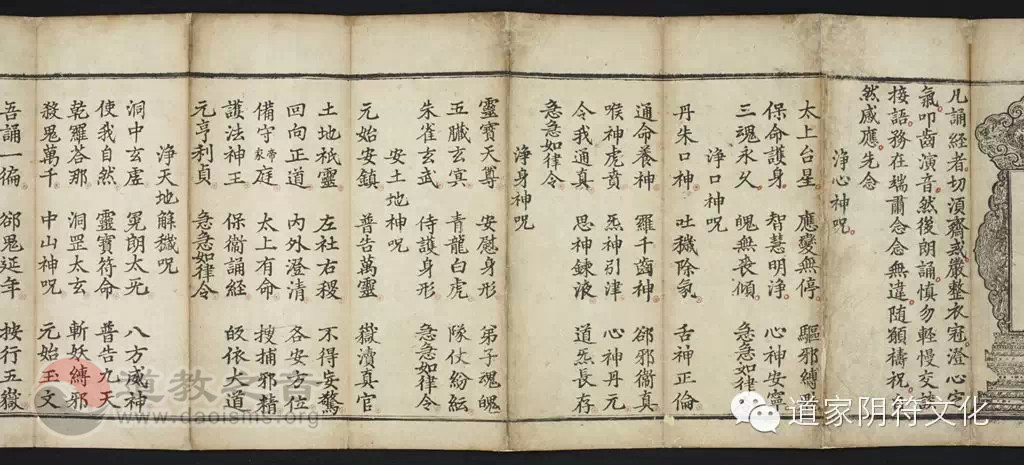 凡誦經者切須齋戒嚴整衣冠澄心定
氣叩齒演音然後朗誦慎勿輕慢交談
接語務在端肅念念無違随願禱祝
然感應先念
淨心神呪
太上台星 應變無停 驅邪縛
保命護身 智慧明淨 心神安寧
三魂永久 魄無喪傾 急急如律令
淨口神呪
丹朱口神 吐穢除氛 舌神正倫
通命養神 羅千齒神 郤邪衞真
喉神虎賁 炁神引津 心神丹元
令我通真 思神鍊液 道炁長存
急急如律令
淨身神呪
靈寶天尊 安慰身形 弟子魂魄
五臟玄冥 青龍白虎 隊仗紛紜
朱雀玄武 侍護身形 急急如律令
安土地神呪
元始安鎮 普告萬靈 嶽瀆真官
土地祇靈 左社右稷 不得妄驚
回向正道 内外澄清 各安方位
備守帝家庭 太上有命 搜捕邪精
護法神王 保衞誦経 皈依大道
元亨利貞 急急如律令
淨天地解穢呪
洞中玄虚 晃朗太元 八方威神
使我自然 靈寶符命 普告九天
乾羅荅那 洞罡太玄 斬妖縛邪
殺鬼萬千 中山神呪 元始玉文
吾誦一徧 郤鬼延年 按行五嶽
道教之音
www.daoisms.org
道家阴符文化